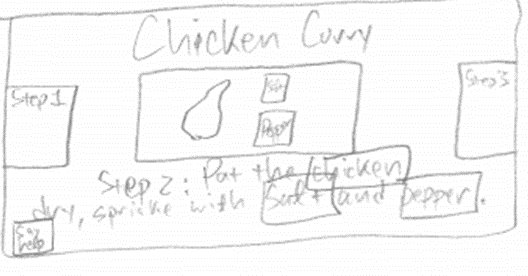 Chicken Curry
Step 1
Salt
Pepper
Step 3
Step 2: Pat the chicken
dry, sprinkle with Salt and pepper.
help